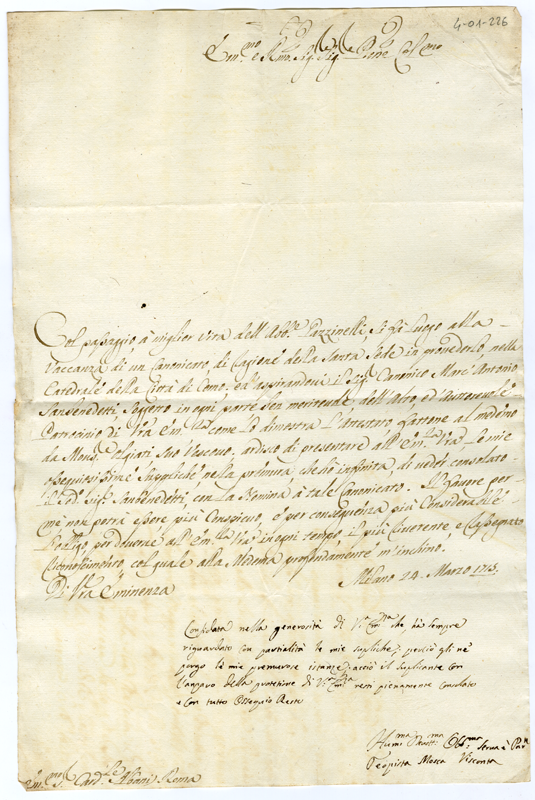 4-01-226
Em.mo e R.mo Sig. Sig. Pnre Col.mo
Col passaggio à miglior vita dell'Abb.e Pazzinelli, si fà luogo alla
Vaccanza di un Canonicato, di Cagione della Santa Sede in provederlo, nella
Catedrale della Città di Como, ed aspirandovi il Sig.r Canonico Marc'Antonio
Sanbendetti, soggetto in ogni parte ben meritevole, dell'Alto, ed Autorevole
Patrocinio di V'ra Em.za come lo dimostra l'Attestato fattone al medemo
da Mons.r Olgiati suo Vescovo, ardisco di presentare all'Em.za V'ra le mie
obsequiosissime suppliche nella premura, che hò infinita, di veder consolato
il sud.o Sig.r Sanbendetti, con la Nomina à tale Canonicato. Il favore per
me non potrà essere più Conspicuo, e per conseguenza più Considerabile
per doverne all'Em.za V'ra in ogni tempo, il più riverente, e
col quale alla Medema profondamente m'inchino.
Di V'ra Eminenza Milano 24 Marzo 1713.
Confidata nella generosità di V.a Em.za che hà sempre
riguardato con partialità le mie supliche, perciò gli ne
porgo le mie premurose istanze, acciò il suplicante con
l'apparo della protetione di V.a Em.za resti pienamente consolato
e con tutto Ossequio Resto
Hum.ma Devott.ma Obb.ma Serva e Par.te
Teopista Mosca Visconta
Em.mo S. Card.le Albani Roma